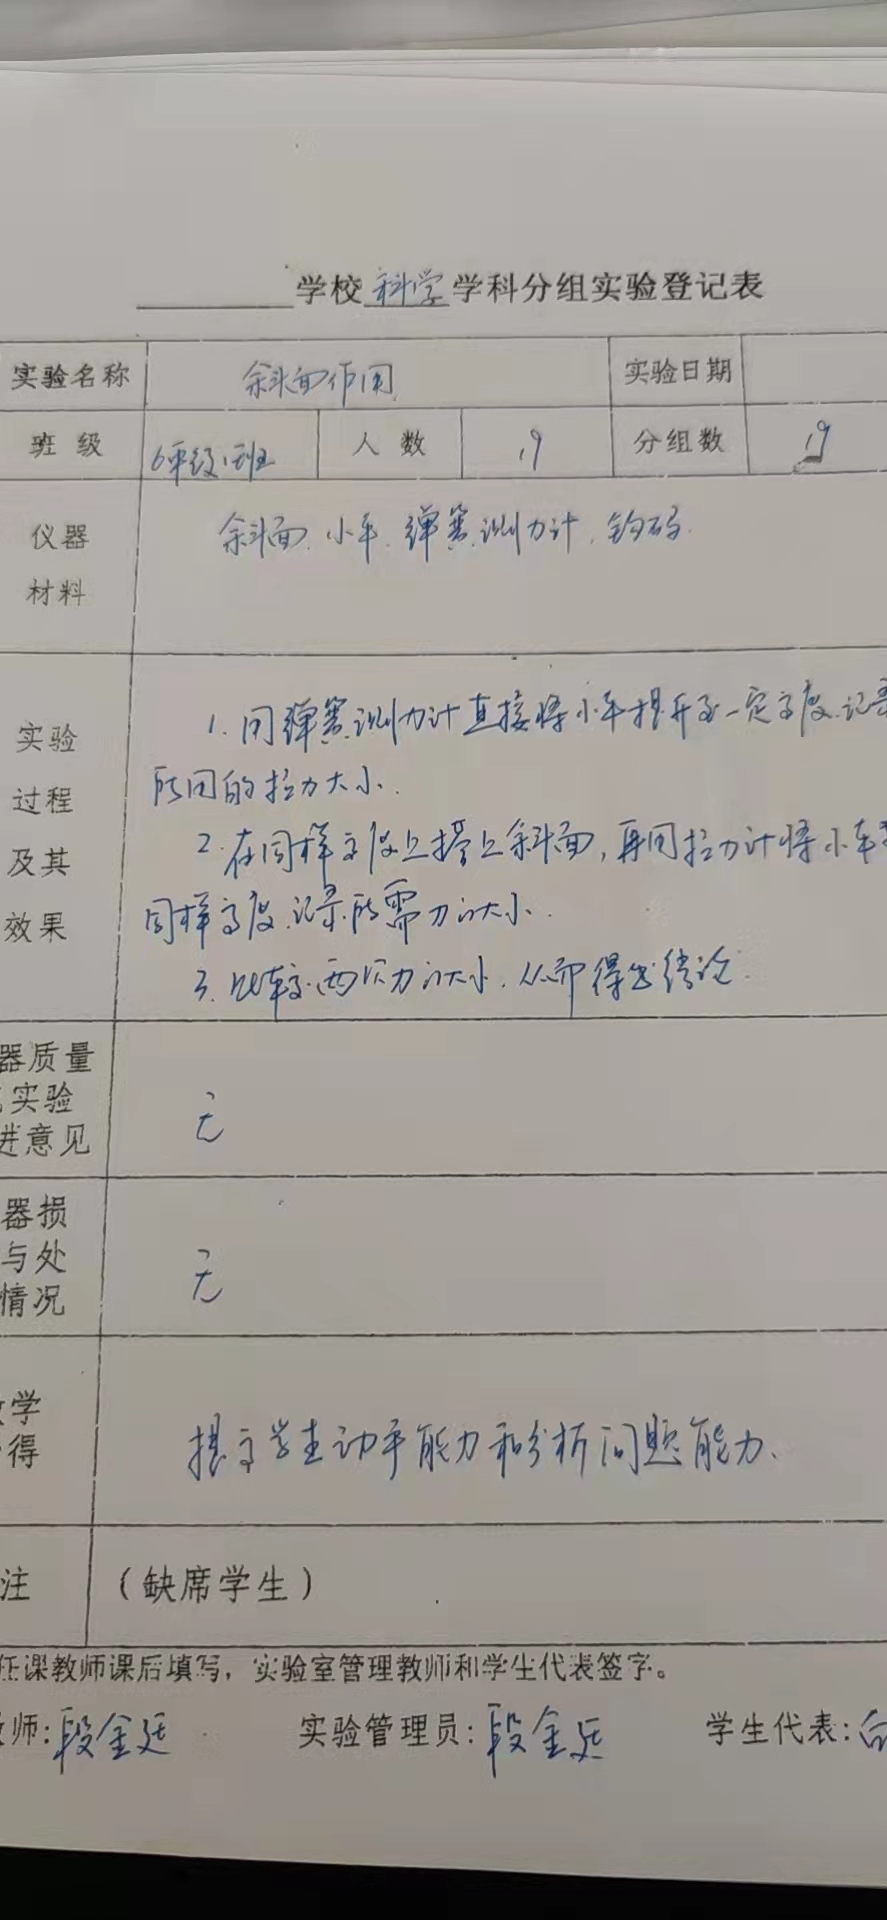 学校 科学 学科分组实验登记表
实验名称 斜面作用 实验日期
班级 6年级1班 人数 19 分组数 19
仪器材料 斜面、小车、弹簧测力计、钩码.
实验过程及其效果
1. 用弹簧测力计直接将小车提升至一定高度,记录
所用的拉力大小.
2. 在同样高度上搭上斜面,再用拉力计将小车
同样高度,记录所需力的大小.
3. 比较两次力的大小,从而得出结论.
器质量
实验
进意见 无
器损
与处
情况 无
学
得 提高学生动手能力和分析问题能力、
注 (缺席学生)
任课教师课后填写,实验室管理教师和学生代表签字。
师: 段金廷 实验管理员: 段金廷 学生代表: 白